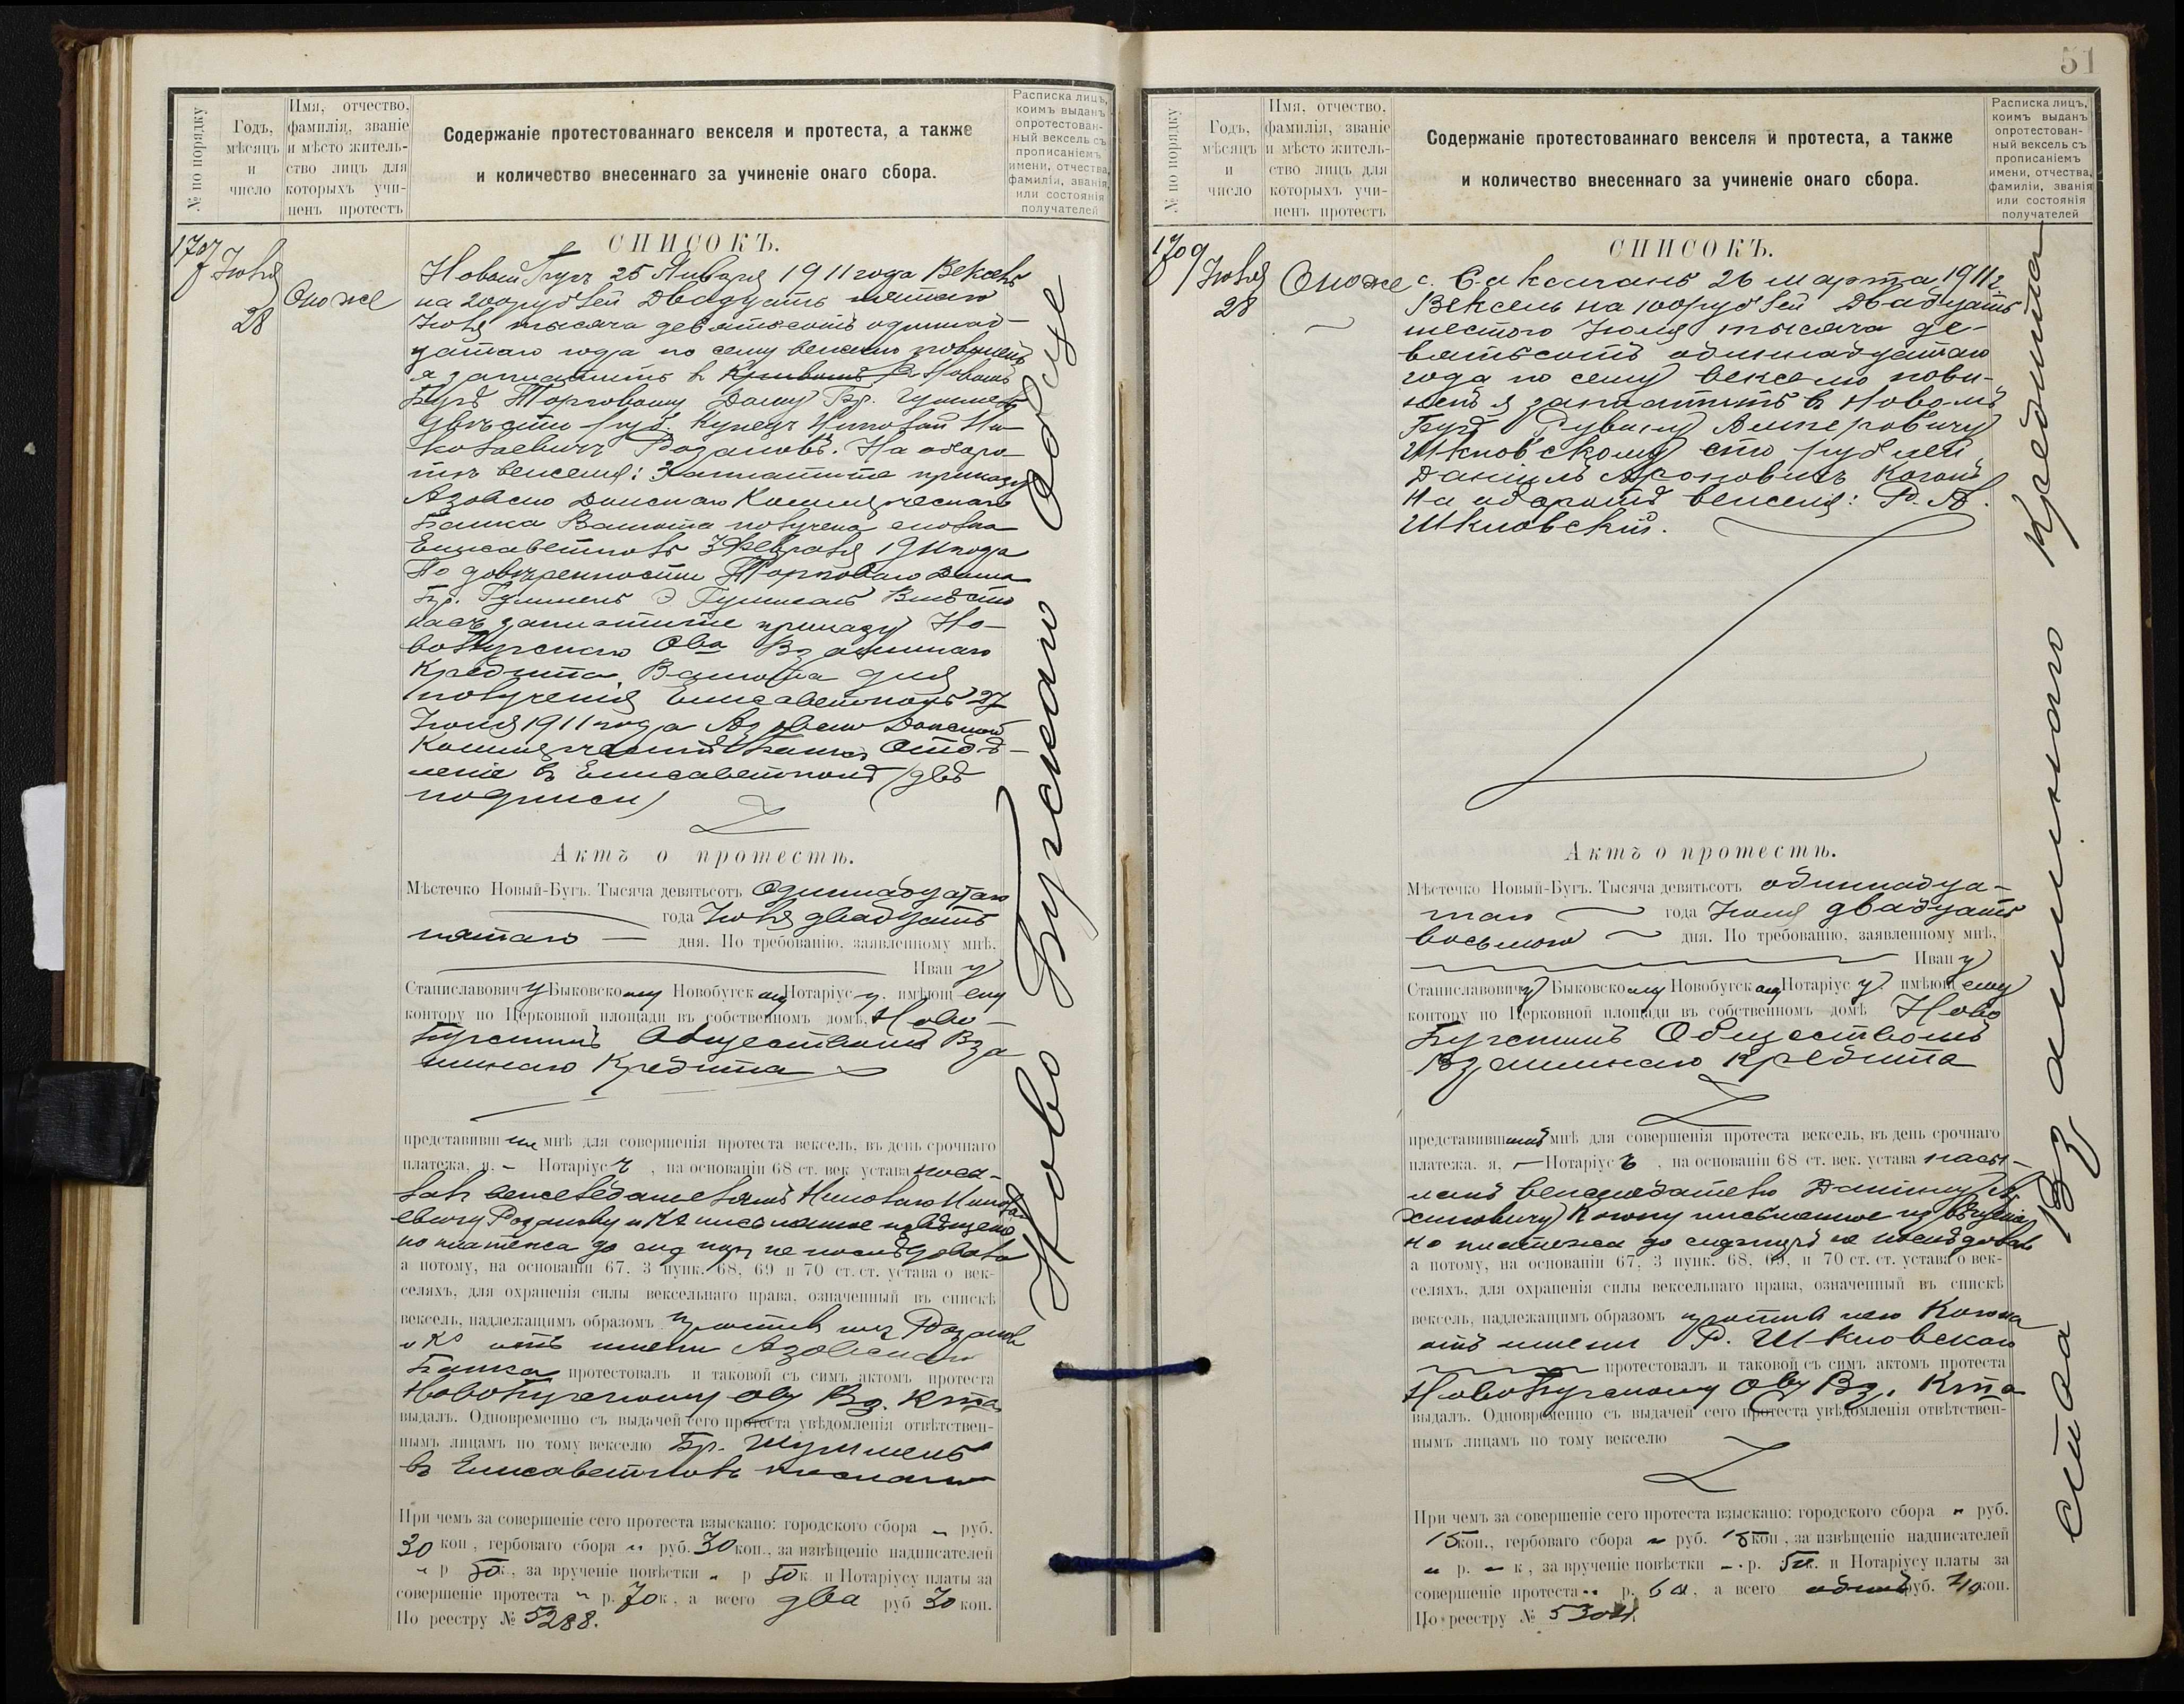 № по порядку
Годъ, мѣсяцъ и число
Имя, отчество, фамилія, званіе и мѣсто жительство лицъ для которыхъ учиненъ протестъ
Содержаніе протестованнаго векселя и протеста, а также
и количество внесеннаго за учиненіе онаго сбора.
Расписка лицъ, коимъ выданъ опротестованный вексель съ прописаніемъ имени, отчества, фамиліи, званія или состоянія получателей
Іюля
28
Оно же
СПИСОКЪ.
Новый Бугъ 25 Января 1911 года Вексель
на 200 рублей Двадцать пятаго
Іюля тысяча девятьсотъ одиннад-
цатаго года по сему векселю повиненъ
я заплатить в Новомъ
Бугѣ Торговому Дому Бр.
двѣсти руб. Купецъ Николай Ни-
колаевичъ Розановъ. На оборо-
тѣ векселя: Заплатите приказу
Азовско Донского Коммерческаго
Банка Валюта получена сполна
Елисаветполь 3 Февраля 1911 года
По довѣренности Торговаго Дома
Бр. Вмѣсто
насъ заплатите приказу Но-
вобугскаго Ова Взаимнаго
Кредита Валюта для
полученія 27
Іюня 1911 года Азовско Донской
Коммерческій Банкъ Отдѣ-
леніе в (двѣ
подписи)
Актъ о протестѣ.
Мѣстечко Новый-Бугъ. Тысяча девятьсотъ Одиннадцатаго
года Іюля двадцать
пятаго — дня. По требованію, заявленному мнѣ,
Ивану
Станиславовичу Быковскому Новобугскому Нотаріусу, имѣющему
контору по Церковной площади въ собственномъ домѣ, Ново-
Бугскимъ Обществомъ Вза
имнаго Кредита
представившим мнѣ для совершенія протеста вексель, въ день срочнаго
платежа, я, — Нотаріусъ, на основаніи 68 ст. век. устава посы-
лалъ векселедателямъ Николаю Никола
евичу Розанову и К° письменное извѣщеніе
но платежа до сихъ поръ не послѣдовало
а потому, на основаніи 67, 3 пунк. 68, 69 и 70 ст. ст. устава о век-
селяхъ, для охраненія силы вексельнаго права, означенный въ спискѣ
вексель, надлежащимъ образомъ противъ нихъ Розанова
и К° отъ имени Азовскаго
Банка протестовалъ и таковой съ симъ актомъ протеста
Новобугскому Ову Вз. Кта
выдалъ. Одновременно съ выдачей сего протеста увѣдомленія отвѣтствен-
нымъ лицамъ по тому векселю Бр.
в
При чемъ за совершеніе сего протеста взыскано: городского сбора „ руб.
30 коп., гербоваго сбора „ руб. 30 коп., за извѣщеніе надписателей
„ р 50 к., за врученіе повѣстки „ р 50 к. и Нотаріусу платы за
совершеніе протеста „ р. 70 к, а всего два руб 30 коп.
По реестру № 5288.
Ново Бугскаго Обще
51
№ по порядку
Годъ, мѣсяцъ и число
Имя, отчество, фамилія, званіе и мѣсто жительство лицъ для которыхъ учиненъ протестъ
Содержаніе протестованнаго векселя и протеста, а также
и количество внесеннаго за учиненіе онаго сбора.
Расписка лицъ, коимъ выданъ опротестованный вексель съ прописаніемъ имени, отчества, фамиліи, званія или состоянія получателей
1709
Іюля
28
Оно же
СПИСОКЪ.
с. 26 марта 1911 г.
Вексель на 100 рублей Двадцать
шестого Іюля тысяча де-
вятьсотъ одиннадцатаго
года по сему векселю пови-
ненъ я заплатить в Новомъ
Бугѣ Рувиму
Шкловскому сто рублей
Даніилъ Когонъ
На оборотѣ векселя: Р. А.
Шкловскій.
Актъ о протестѣ.
Мѣстечко Новый-Бугъ. Тысяча девятьсотъ одиннадца-
таго года Іюля двадцать
восьмого дня. По требованію, заявленному мнѣ,
Ивану
Станиславовичу Быковскому Новобугскому Нотаріусу имѣющему
контору по Церковной площади въ собственномъ домѣ Ново
Бугскимъ Обществомъ
Взаимнаго Кредита
представившимъ мнѣ для совершенія протеста вексель, въ день срочнаго
платежа. я, — Нотаріусъ, на основаніи 68 ст. век. устава посы-
лалъ векселедателю Даніилу
Когону письменное извѣщеніе
но платежа до сихъ поръ не послѣдовало
а потому, на основаніи 67, 3 пунк. 68, 69, и 70 ст. ст. устава о век-
селяхъ, для охраненія силы вексельнаго права, означенный въ спискѣ
вексель, надлежащимъ образомъ противъ него Когона
отъ имени Р. Шкловскаго
протестовалъ и таковой съ симъ актомъ протеста
Новобугскому Ову Вз. Кта
выдалъ. Одновременно съ выдачей сего протеста увѣдомленія отвѣтствен-
нымъ лицамъ по тому векселю
При чемъ за совершеніе сего протеста взыскано: городского сбора „ руб.
15 коп., гербоваго сбора „ руб. 15 коп, за извѣщеніе надписателей
„ р. „ к, за врученіе повѣстки „ р. 50 к. и Нотаріусу платы за
совершеніе протеста „ р. 60, а всего одинъ руб. 40 коп.
По реестру № 5304.
ства Взаимнаго Кредита